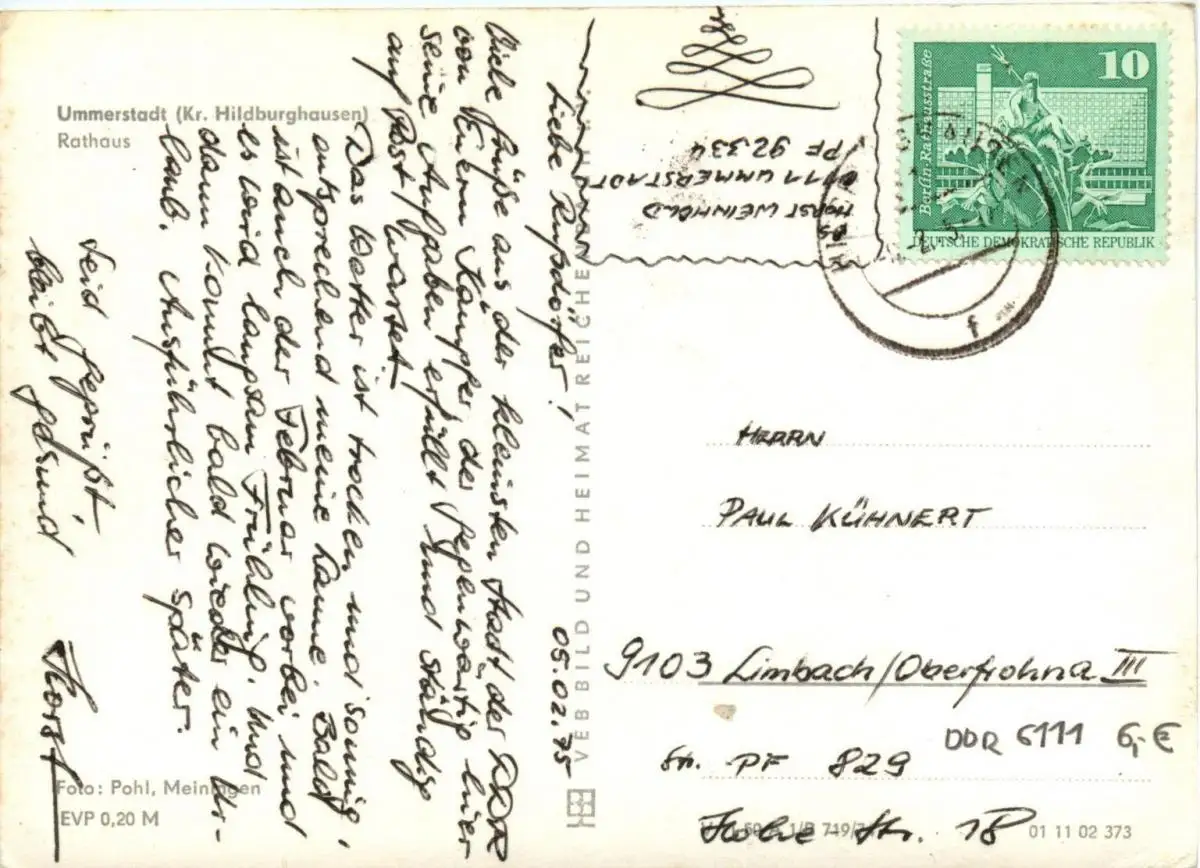 Ummerstadt (Kr. Hildburghausen)
Rathaus
05.02.75
Liebe Rußdörfer!
Viele Grüße aus der kleinsten Stadt der DDR
von Eurem Kämpfer, der gegenwärtig hier
seine Aufgaben erfüllt und ständig
auf Post wartet.
Das Wetter ist trocken und sonnig,
entsprechend meine Laune. Bald
ist auch der Februar vorbei und
es wird langsam Frühling. Und
dann kommt bald wieder ein Ur-
laub. Ausführlicher später.
Seid gegrüßt,
bleibt gesund
Horst
Foto: Pohl, Meiningen
EVP 0,20 M
VEB BILD UND HEIMAT REICHENBACH
HORST WEINHOLD
6111 UMMERSTADT
PF 92334
10
Berlin-Rathausstraße
DEUTSCHE DEMOKRATISCHE REPUBLIK
f
HERRN
PAUL KÜHNERT
9103 Limbach/Oberfrohna III
PF 829
DDR 6111 6,- €
Hohe Str. 18
01 11 02 373